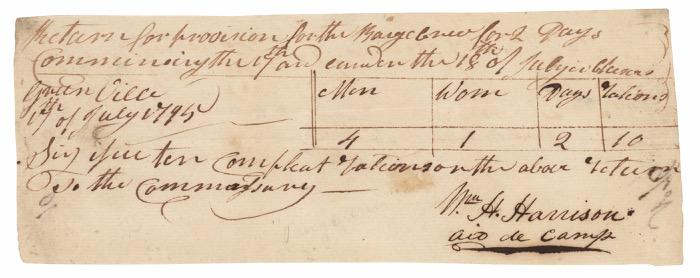 Return for provision for the Barge Crew for 2 Days
Commencing the 17th and ending the 18th of July inclusive
Green Ville
17th of July 1795
Men Wom Days Rations
4 1 2 10
Sir issue ten Compleat Rations on the above Return
To the Commassary
Wm H. Harrison
aid de camp